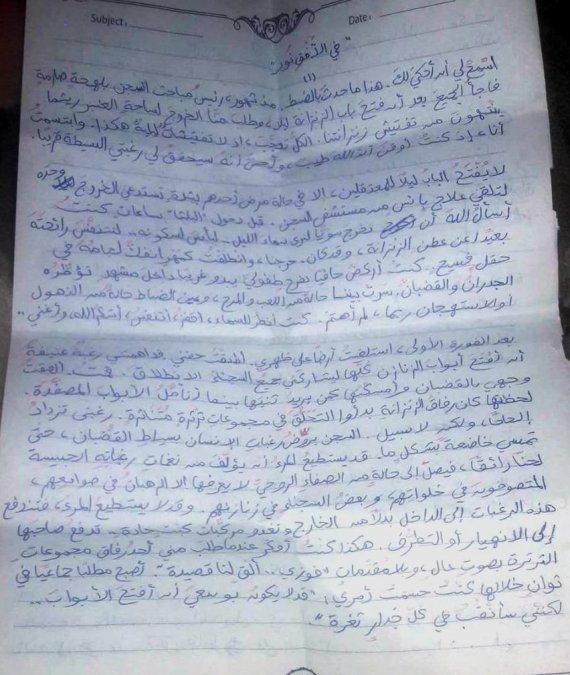 Subject :
Date :
"في الأفق نور"
(١)
اسمع لي أن أحكي لك. هذا ما حدث بالضبط. منذ شهور، رئيس مباحث السجن بلهجة صارمة
فاجأ الجميع بعد أن فتح باب الزنزانة ليلا، وطلب منا الخروج لساحة العنبر ريثما
ينتهون من تفتيش زنزانتنا. الكل تعجب، إذ لا تفتيشة ليلية هكذا. وابتسمت
أنا، إذ كنت أوقن أن الله طيب، وأحس أنه سيحقق لي رغبتي البسيطة قريبا.
لا يُفتح الباب ليلًا للمعتقلين، إلا في حالة مرض أحدهم بشدة تستدعي الخروج وحده
لتلقي علاج بائس من مستشفى السجن. قبل دخول ساعات كنت
أسأل الله أن نخرج سويا لنرى سماء الليل.. لنأنس لسكونه.. لنتنفس رائحته
بعيدا عن عطن الزنزانة، وقد كان. خرجنا، وانطلقت كمهر انفك لجامه في
حقل فسيح. كنت أركض حافيا بفرح طفولي يبدو غريبا داخل مشهد تؤطره
الجدران والقضبان. سرت بيننا حالة من اللعب والمرح، وبين الضباط حالة من الذهول
أو الاستهجان ربما، لم أهتم. كنت أنظر للسماء، أقفز، أتنفس، أشكر الله، وأغني..
بعد الفورة الأولى، استلقيت أرضا على ظهري. أطبقت جفني. داهمتني رغبة عنيفة
أن أفتح أبواب الزنازن كلها ليشاركني جميع السجناء الانطلاق. قمت. ألصقت
وجهي بالقضبان وأمسكتها كمن يريد ثنيها بينما أتأمل الأبواب المصفدة.
لحظتها كان رفاق الزنزانة بدأوا التحلق في مجموعات ثرثرة متناثرة. رغبتي تزداد
إلحاحا، ولكن لا سبيل. السجن يروض رغبات الإنسان بسياط القضبان، حتى
تمسي خاضعة بشكل ما. قد يستطيع المرء أن يؤلف من نغمات رغباته الحبيسة
لحنا رائقا، فيصل إلى حالة من الصفاء الروحي لا يعرفها إلا الرهبان في صوامعهم،
المتصوفون في خلواتهم، وبعض السجناء في زنازينهم. وقد لا يستطيع المرء، فتندفع
هذه الرغبات إلى الداخل بدلا من الخارج وتغدو مركبات كبت حادة.. تدفع صاحبها
إلى الانهيار أو التطرف. هكذا كنت أفكر عندما طلب مني أحد رفاق مجموعات
الثرثرة بصوت عال، وبلا مقدمات "فوزي.. ألقِ لنا قصيدة". أصبح مطلبا جماعيا في
ثوان خلالها كنت حسمت أمري: "قد لا يكون بوسعي أن أفتح الأبواب..
لكنني سأنقب في كل جدار ثغرة".